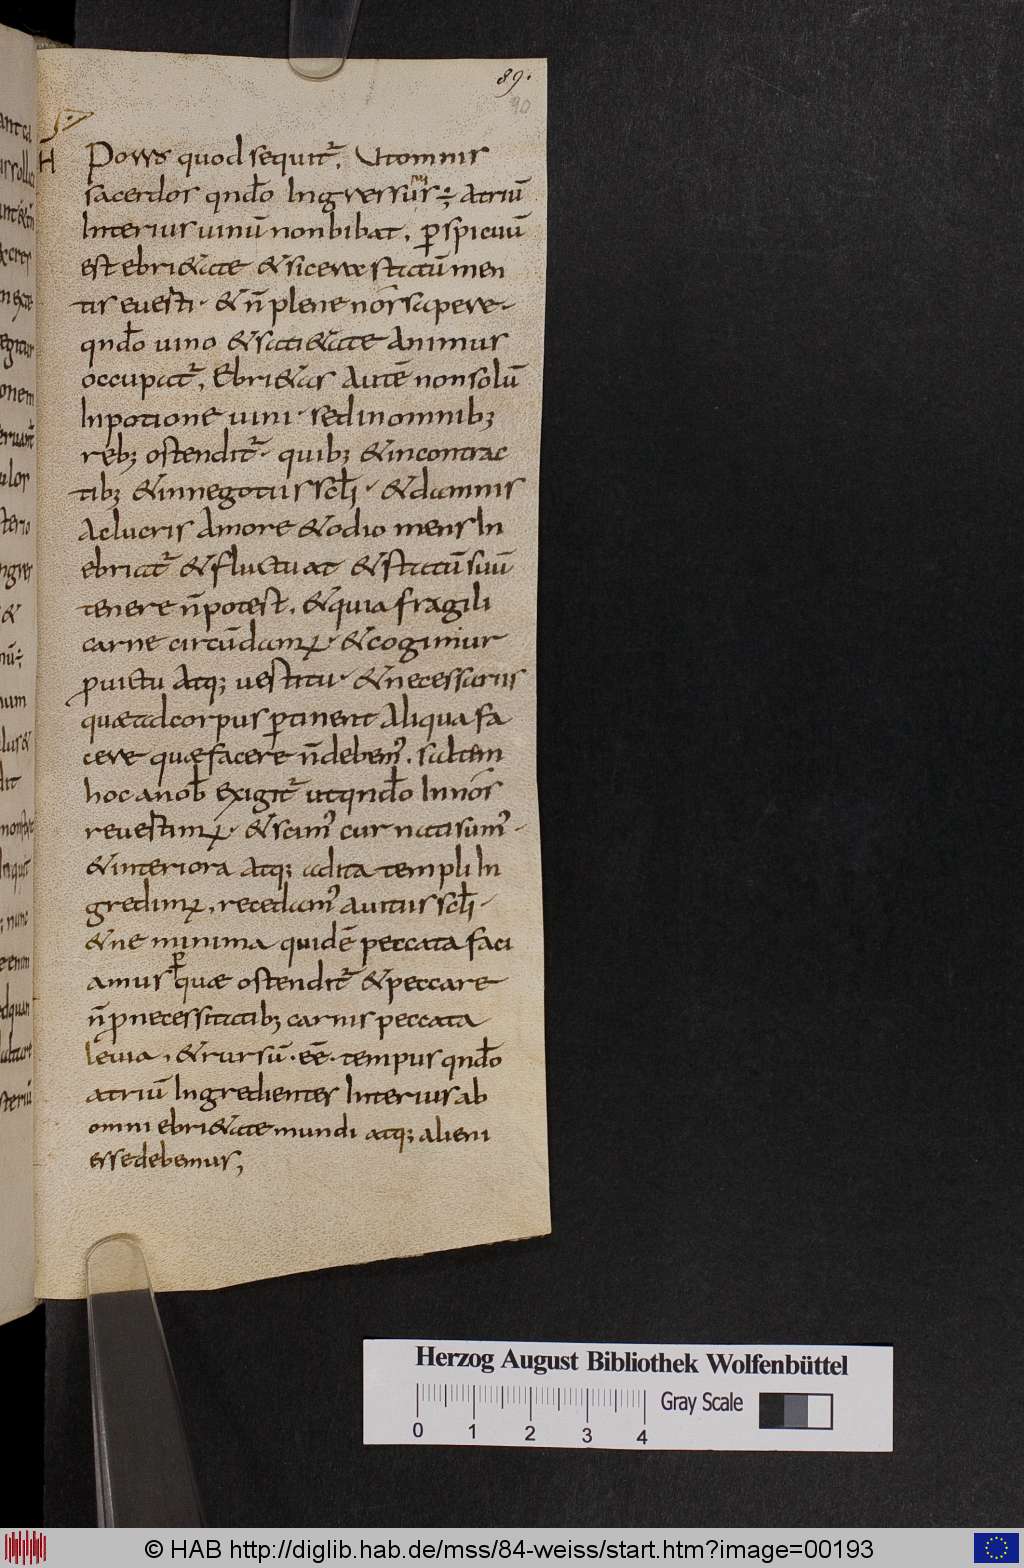 89.
90
H Porro quod sequit̃. Ut omnis
sacerdos qndo Ingressurus ÷ atriũ
Interius uinũ non bibat. p̲spicuũ
est ebri&ate & sicerae statũ men
tis euerti· & ñ plene nos sapere·
qndo uino & sati&ate animus
occupat̃. Ebri&as autẽ non solũ
In potione uini· sed in omnib;
reb; ostendit̃· quib; & in contrac
tib; & in negotiis scłi· & damnis
ac lucris amore & odio mens In
ebriat̃ & fluctuat & statũ suũ
tenere ñ potest. & quia fragili
carne circũdamur· & cogimur
ꝓ uictu atq; uestitu· & necessariis
quae ad corpus p̲tinent aliqua fa
cere quae facere ñ debem᾽. saltem
hoc a nob̃ exigit̃ ut qndo In nos
reuertimur· & scim᾽ cur nati sum᾽·
& interiora atq; adita templi In
gredimur, recedam᾽ a uitiis scłi·
& ne minima quidẽ peccata faci
amus p̲ quae ostendit̃ & peccare
ñ ꝓ necessitatib; carnis peccata
leuia, & rursũ· eẽ· tempus qndo
atriũ Ingredientes Interius ab
omni ebri&ate mundi atq; alieni
esse debemus,
Herzog August Bibliothek Wolfenbüttel
Gray Scale
0 1 2 3 4
© HAB http://diglib.hab.de/mss/84-weiss/start.htm?image=00193